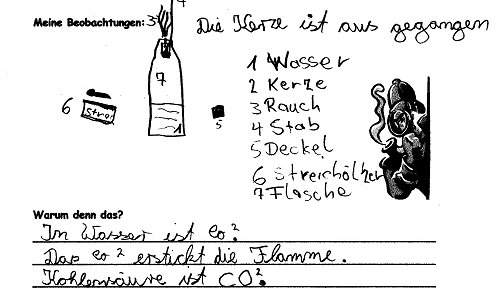 4
Meine Beobachtungen: 3 Die Kerze ist aus gegangen
1 Wasser
2 Kerze
7
3 Rauch
6 Strei
4 Stab
1
5
5 Deckel
6 Streichölzer
7 Flasche
Warum denn das?
Im Wasser ist co².
Das co² erstickt die Flamme.
Kohlensäure ist CO².